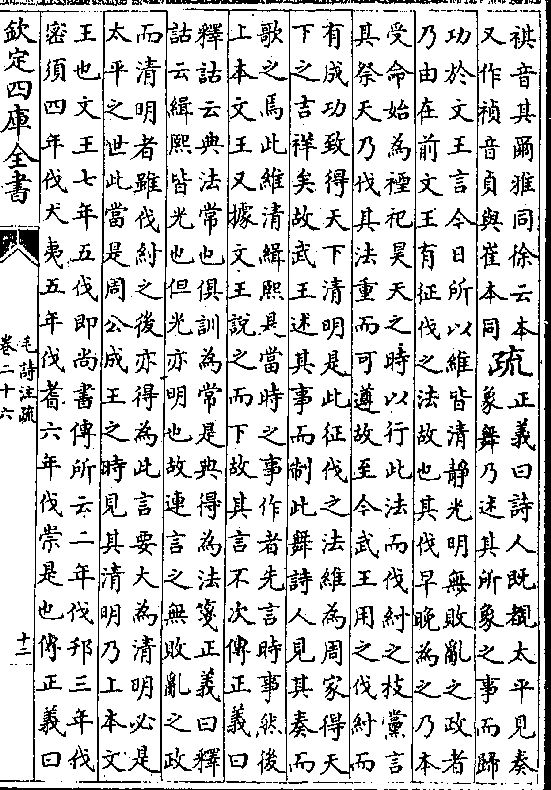 祺音其爾雅同徐云本
又作禎音貞與崔本同
疏
正義曰詩人既觀太平見奏
象舞乃述其所象之事而歸
功於文王言今日所以維皆清靜光明無敗亂之政者
乃由在前文王有征伐之法故也其伐早晚為之乃本
受命始為禋祀昊天之時以行此法而伐紂之枝黨言
其祭天乃伐其法重而可遵故至今武王用之伐紂而
有成功致得天下清明是此征伐之法維為周家得天
下之吉祥矣故武王述其事而制此舞詩人見其奏而
歌之焉此維清緝熙是當時之事作者先言時事然後
上本文王又據文王說之而下故其言不次傳正義曰
釋詁云典法常也俱訓為常是典得為法箋正義曰釋
詁云緝熙皆光也但光亦明也故連言之無敗亂之政
而清明者雖伐紂之後亦得為此言要大為清明必是
太平之世此當是周公成王之時見其清明乃上本文
王也文王七年五伐即尚書傳所云二年伐邘三年伐
密須四年伐犬夷五年伐耆六年伐崇是也傳正義曰
欽定四庫全書
毛詩注疏
卷二十六
十二